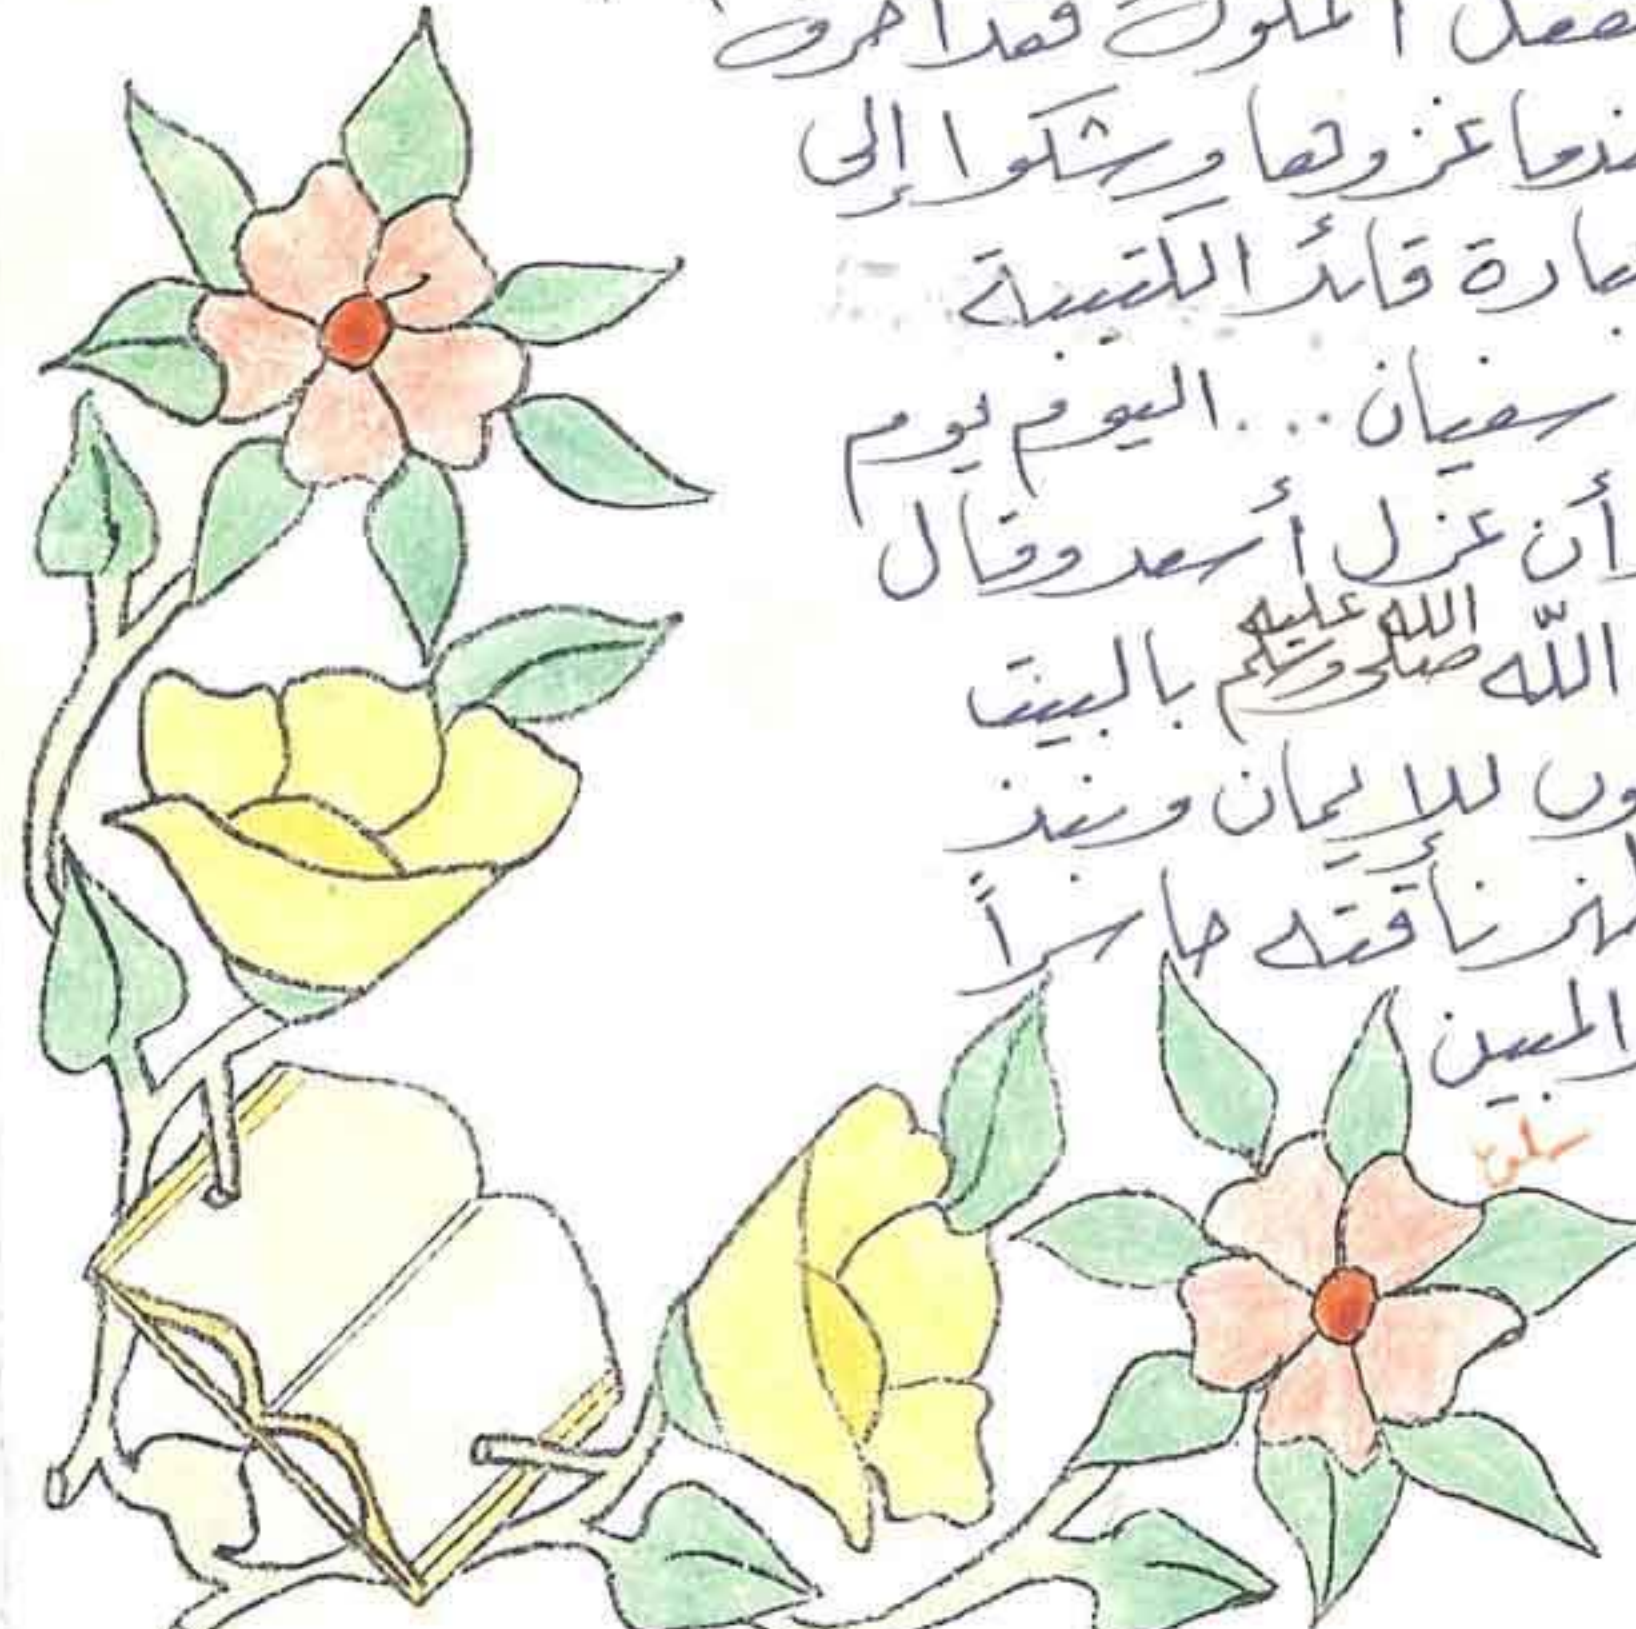 الملوك فقد أحرق
غزوها وشكوا إلى
قائد الكتيبة
سفيان... اليوم يوم
أن عزل أسعد وقال
الله صلى الله عليه وسلم بالبيت
للإيمان ونبذ
ناقته حاسراً
المبين